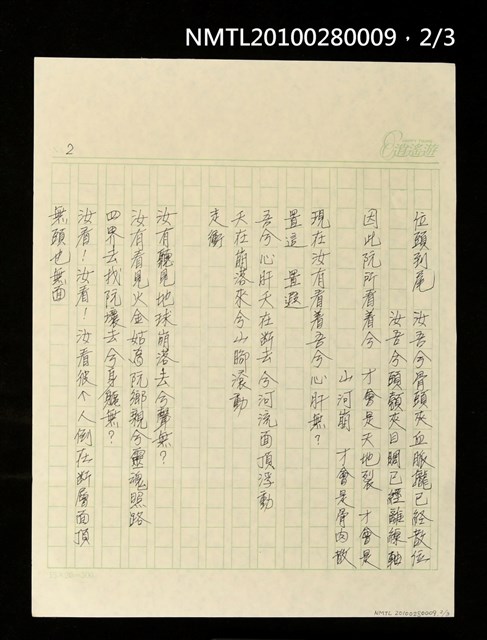 NMTL20100280009，2/3
2
位頭到尾　汝吾兮骨頭夾血脈攏已経散位
汝吾兮頭額夾目睭已經離線軸
因此阮所看着兮　才會是天地裂　才會是
山河崩　才會是骨肉散
現在汝有看着吾兮心肝無？
置這　置遐
吾兮心肝夭在断去兮河流面頂浮動
夭在崩落來兮山脚滾動
走衝
汝有聽見地球崩落去兮聲無？
汝有看見火金姑為阮鄉親兮靈魂照路
四界去找阮壞去兮身軀無？
汝看！汝看！汝看彼个人倒在断層面頂
無頭也無面
NMTL 20100280009, 2/3